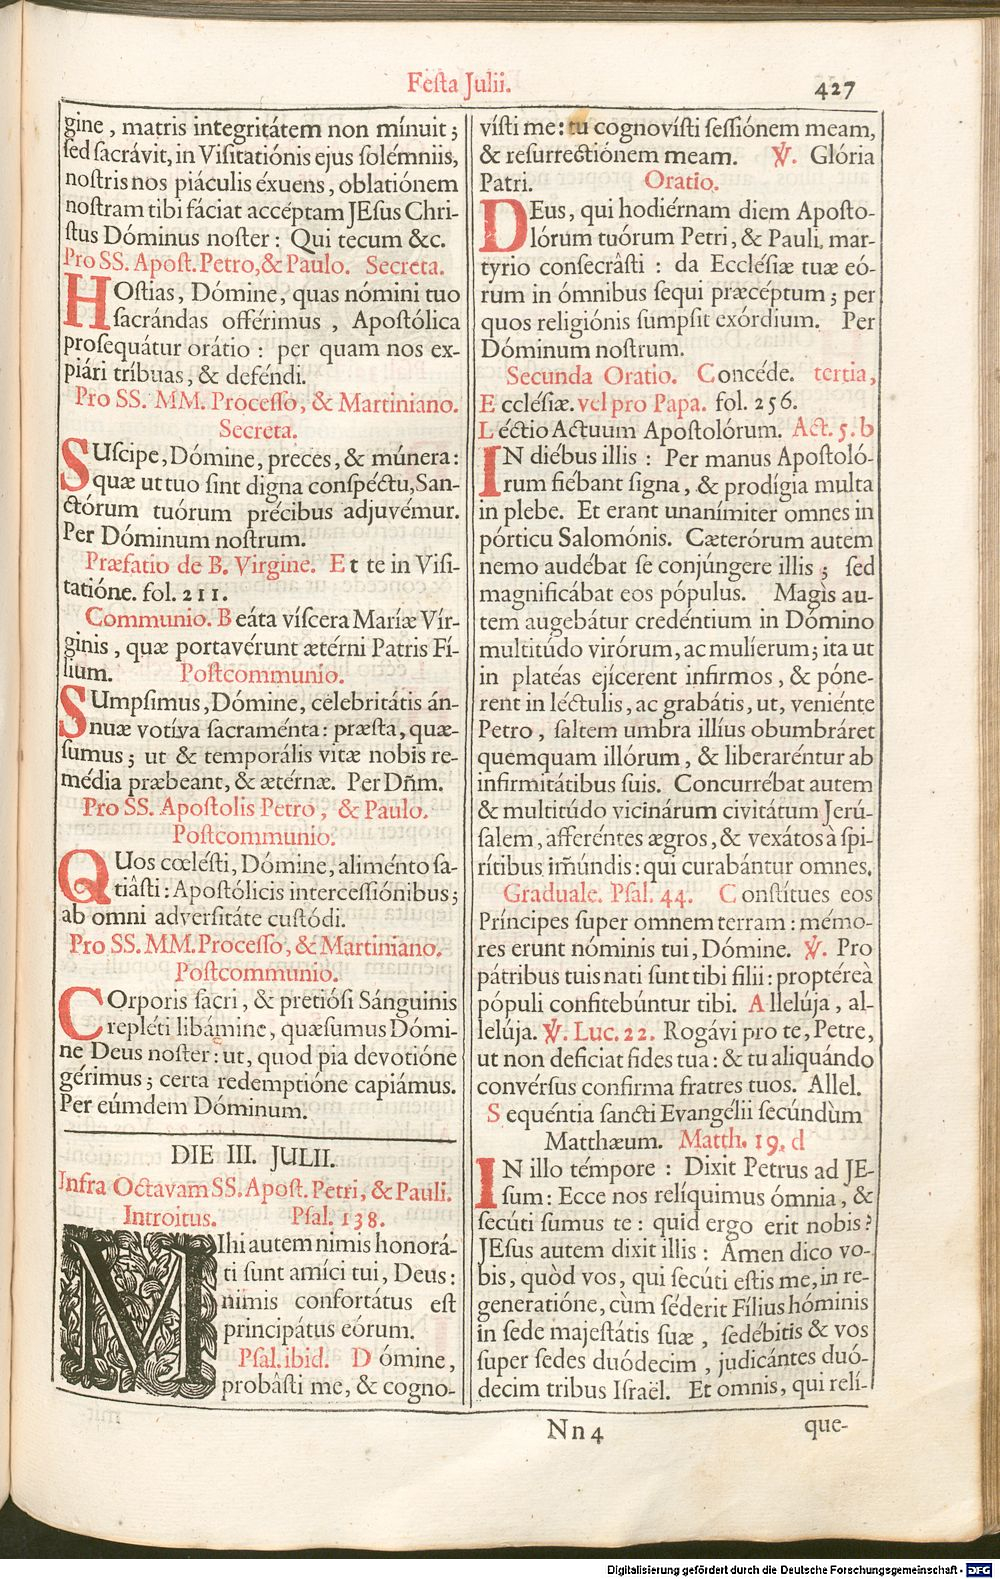 Festa Julii.
427
gine, matris integritátem non mínuit;
sed sacrávit, in Visitatiónis ejus solémniis,
nostris nos piáculis éxuens, oblatiónem
nostram tibi fáciat accéptam JEsus Chri-
stus Dóminus noster: Qui tecum &c.
Pro SS. Apost. Petro, & Paulo. Secreta.
HOstias, Dómine, quas nómini tuo
sacrándas offérimus, Apostólica
prosequátur orátio: per quam nos ex-
piári tríbuas, & deféndi.
Pro SS. MM. Processo, & Martiniano.
Secreta.
SUscipe, Dómine, preces, & múnera:
quæ ut tuo sint digna conspéctu, San-
ctórum tuórum précibus adjuvémur.
Per Dóminum nostrum.
Præfatio de B. Virgine. Et te in Visi-
tatióne. fol. 211.
Communio. Beáta víscera Maríæ Vír-
ginis, quæ portavérunt ætérni Patris Fí-
lium. Postcommunio.
SUmpsimus, Dómine, celebritátis án-
nuæ votíva sacraménta: præsta, quæ-
sumus; ut & temporális vitæ nobis re-
média præbeant, & ætérnæ. Per Dn̄m.
Pro SS. Apostolis Petro, & Paulo.
Postcommunio.
QUos cœlésti, Dómine, aliménto sa-
tiâsti: Apostólicis intercessiónibus;
ab omni adversitáte custódi.
Pro SS. MM. Processo, & Martiniano.
Postcommunio.
COrporis sacri, & pretiósi Sánguinis
repléti libámine, quæsumus Dómi-
ne Deus noster: ut, quod pia devotióne
gérimus; certa redemptióne capiámus.
Per eúmdem Dóminum.
DIE III. JULII.
Infra Octavam SS. Apost. Petri, & Pauli.
Introitus. Psal. 138.
MIhi autem nimis honorá-
ti sunt amíci tui, Deus:
nimis confortátus est
principátus eórum.
Psal. ibid. Dómine,
probâsti me, & cogno-
vísti me: tu cognovísti sessiónem meam,
& resurrectiónem meam. ℣. Glória
Patri. Oratio.
DEus, qui hodiérnam diem Aposto-
lórum tuórum Petri, & Pauli, mar-
tyrio consecrâsti: da Ecclésiæ tuæ eó-
rum in ómnibus sequi præcéptum; per
quos religiónis sumpsit exórdium. Per
Dóminum nostrum.
Secunda Oratio. Concéde. tertia,
Ecclésiæ. vel pro Papa. fol. 256.
Léctio Actuum Apostolórum. Act. 5. b
IN diébus illis: Per manus Apostoló-
rum fiébant signa, & prodígia multa
in plebe. Et erant unanímiter omnes in
pórticu Salomónis. Cæterórum autem
nemo audébat se conjúngere illis; sed
magnificábat eos pópulus. Magìs au-
tem augebátur credéntium in Dómino
multitúdo virórum, ac mulíerum; ita ut
in platéas ejícerent infirmos, & póne-
rent in léctulis, ac grabátis, ut, veniénte
Petro, saltem umbra illíus obumbráret
quemquam illórum, & liberaréntur ab
infirmitátibus suis. Concurrébat autem
& multitúdo vicinárum civitátum Jerú-
salem, afferéntes ægros, & vexátos à spi-
rítibus im̄úndis: qui curabántur omnes.
Graduale. Psal. 44. Constítues eos
Príncipes super omnem terram: mémo-
res erunt nóminis tui, Dómine. ℣. Pro
pátribus tuis nati sunt tibi filii: proptéreà
pópuli confitebúntur tibi. Allelúja, al-
lelúja. ℣. Luc. 22. Rogávi pro te, Petre,
ut non deficiat fides tua: & tu aliquándo
convérsus confirma fratres tuos. Allel.
Sequéntia sancti Evangélii secúndùm
Matthæum. Matth. 19. d
IN illo témpore: Dixit Petrus ad JE-
sum: Ecce nos relíquimus ómnia, &
secúti sumus te: quid ergo erit nobis?
JEsus autem dixit illis: Amen dico vo-
bis, quòd vos, qui secúti estis me, in re-
generatióne, cùm séderit Fílius hóminis
in sede majestátis suæ, sedébitis & vos
super sedes duódecim, judicántes duó-
decim tribus Israël. Et omnis, qui relí-
Nn4
que-
Digitalisierung gefördert durch die Deutsche Forschungsgemeinschaft - DFG